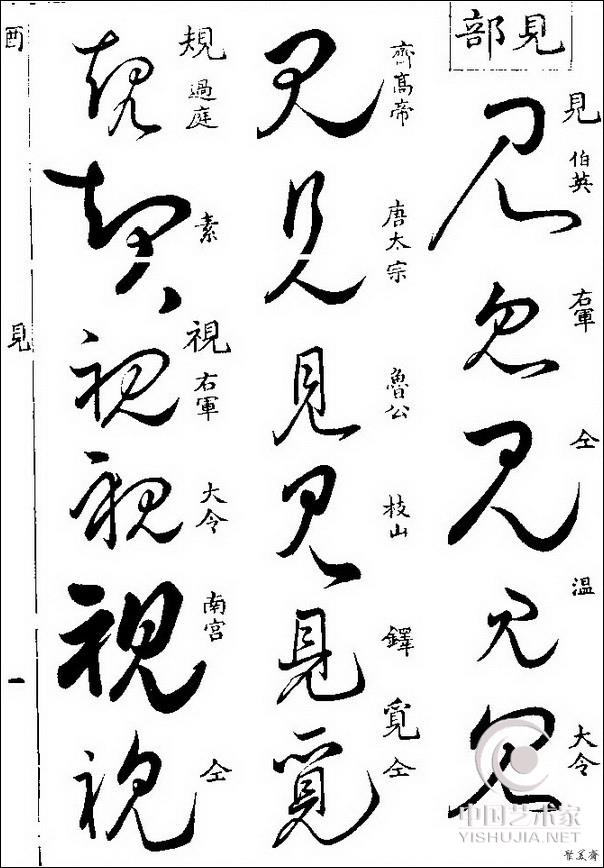 見部
見 伯英
右軍
仝
温
大令
齊高帝
唐太宗
魯公
枝山
鐸
覓 仝
規 過庭
素
視 右軍
大令
南宮
仝
酉
見
一
中国艺术家
YISHUJIA.NET